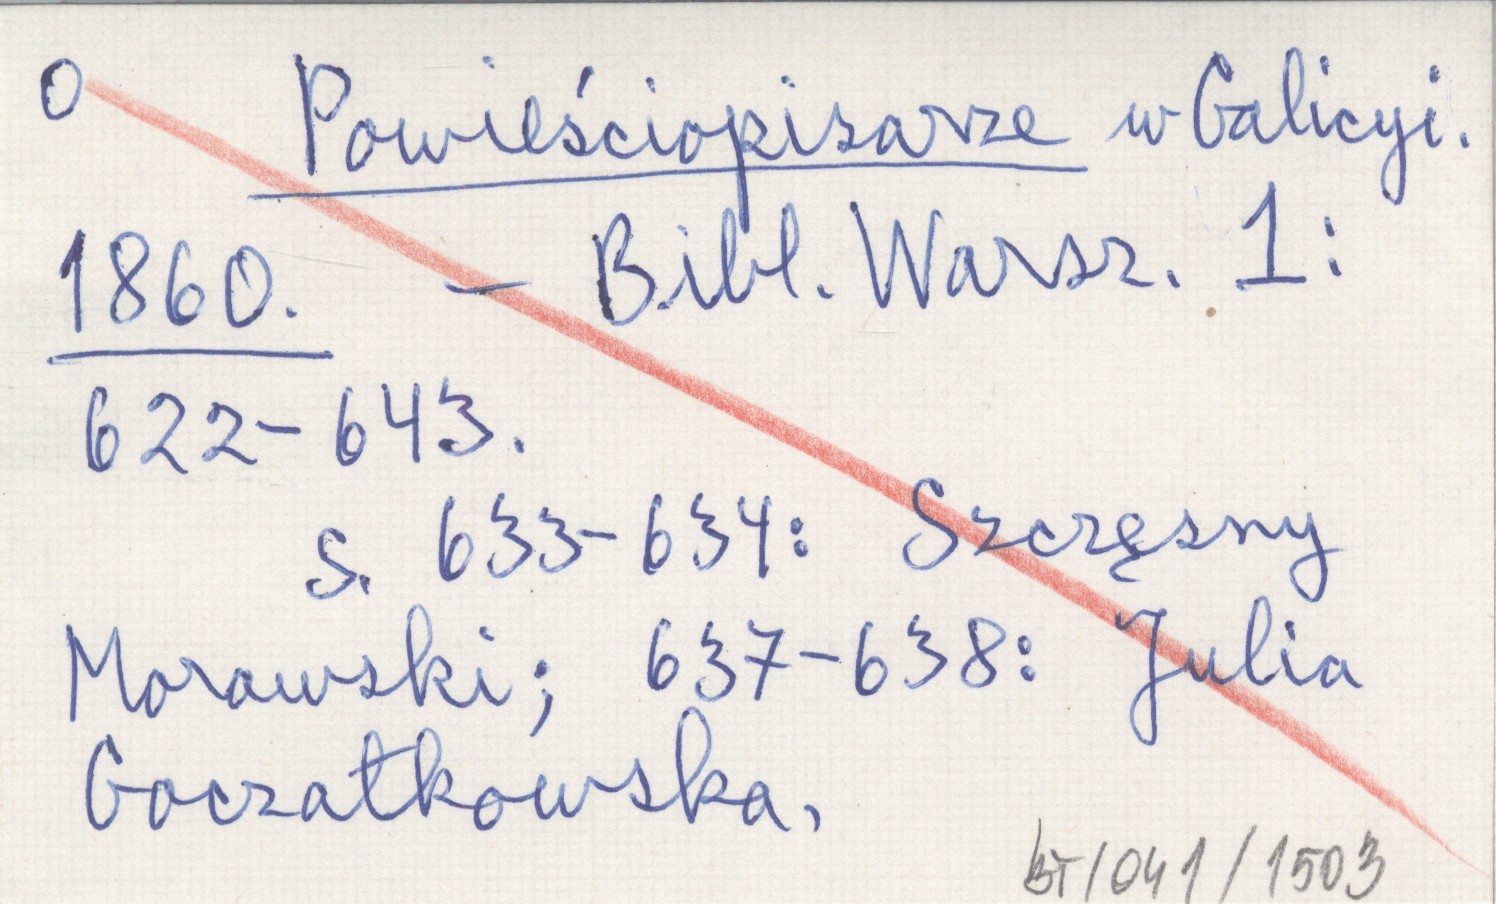 O Powieściopisarze w Galicyi.
1860. — Bibl. Warsz. 1:
622-643.
s. 633-634: Szczęsny
Morawski; 637-638: Julia
Goczałkowska.
BT/041/1503